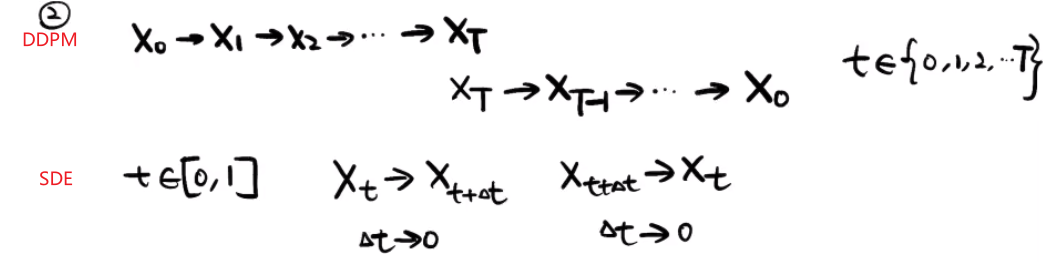 ②
DDPM X₀ → X₁ → X₂ → ⋯ → X_T
X_T → X_{T-1} → ⋯ → X₀ t∈{0,1,2,⋯T}
SDE t∈[0,1] X_t → X_{t+Δt} X_{t+Δt} → X_t
Δt→0 Δt→0